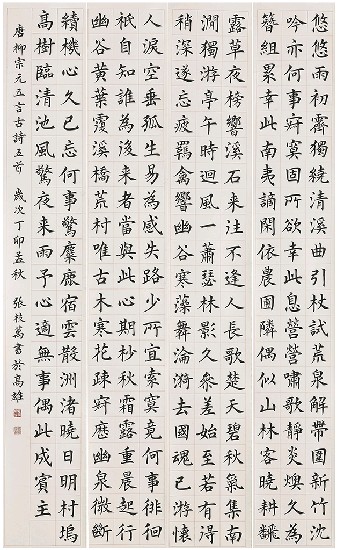 悠悠雨初霽獨繞清溪曲引杖試荒泉解帶圍新竹沈
吟亦何事寂寞固所欲幸此息營營嘯歌靜炎燠久為
簪組累幸此南夷謫閑依農圃隣偶似山林客曉耕翻
露草夜榜響溪石來往不逢人長歌楚天碧秋氣集南
澗獨游亭午時迴風一蕭瑟林影久參差始至若有得
稍深遂忘疲羈禽響幽谷寒藻舞淪漪去國魂已游懷
人淚空垂孤生易為感失路少所宜索寞竟何事徘徊
祇自知誰為後來者當與此心期杪秋霜露重晨起行
幽谷黃葉覆溪橋荒村唯古木寒花疎寂歷幽泉微斷
續機心久已忘何事驚麋鹿宿雲散洲渚曉日明村塢
高樹臨清池風驚夜來雨予心適無事偶此成賓主
唐柳宗元五言古詩五首 歲次丁卯孟秋 張枝萬書於高雄